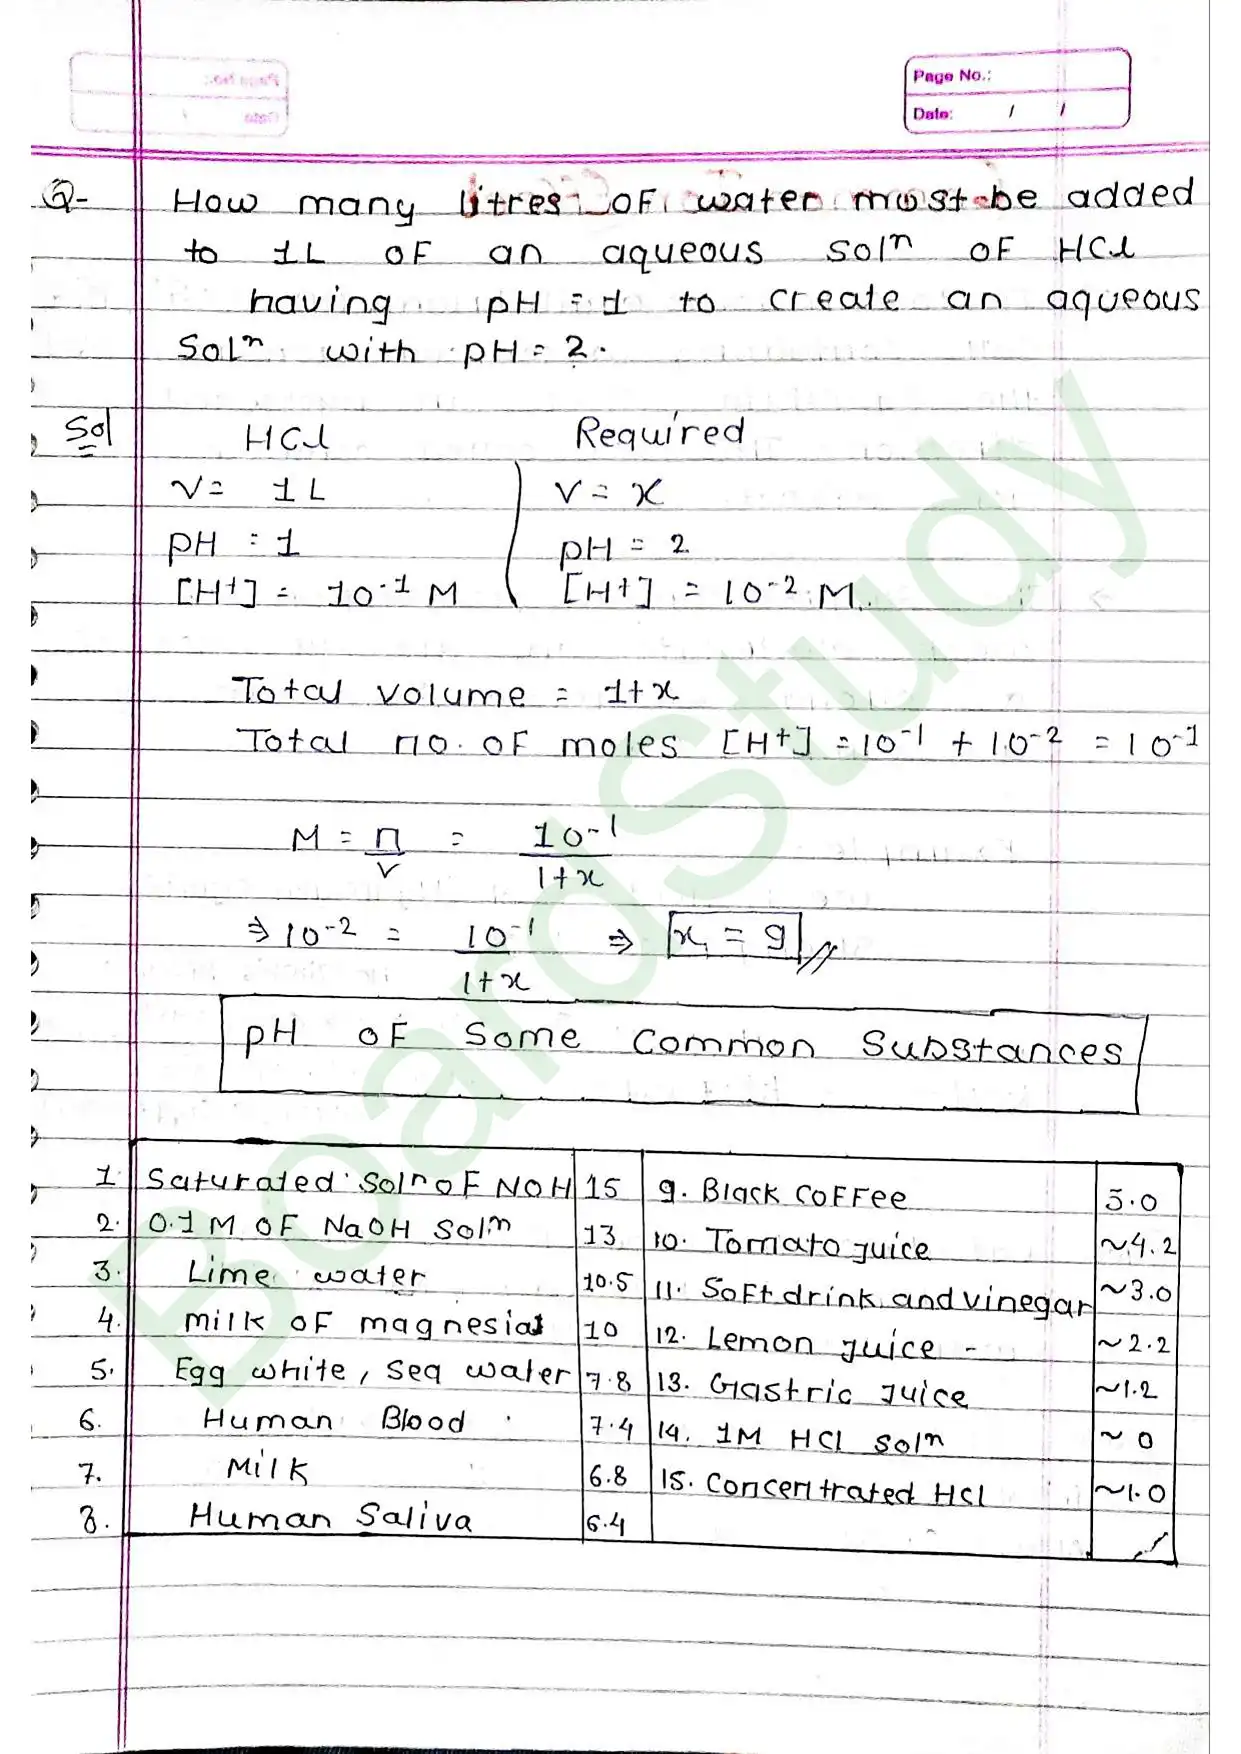 Page No.:
Date: / /
Q- How many litres of water must be added
to 1L of an aqueous solⁿ of HCl
having pH = 1 to create an aqueous
solⁿ with pH = 2.
Sol HCl Required
V = 1L V = x
pH = 1 pH = 2
[H+] = 10⁻¹ M [H+] = 10⁻² M.
Total volume = 1+x
Total no. of moles [H+] = 10⁻¹ + 10⁻² = 10⁻¹
M = n/v = 10⁻¹/1+x
⇒ 10⁻² = 10⁻¹/1+x ⇒ x = 9
pH of Some Common Substances
1. Saturated Solⁿ of NOH 15 9. Black Coffee 5.0
2. 0.1 M of NaOH Solⁿ 13 10. Tomato Juice ~4.2
3. Lime water 10.5 11. Soft drink and vinegar ~3.0
4. milk of magnesia 10 12. Lemon juice - ~2.2
5. Egg white, sea water 7.8 13. Gastric Juice ~1.2
6. Human Blood 7.4 14. 1M HCl solⁿ ~0
7. Milk 6.8 15. Concentrated HCl ~1.0
8. Human Saliva 6.4
BoardStudy